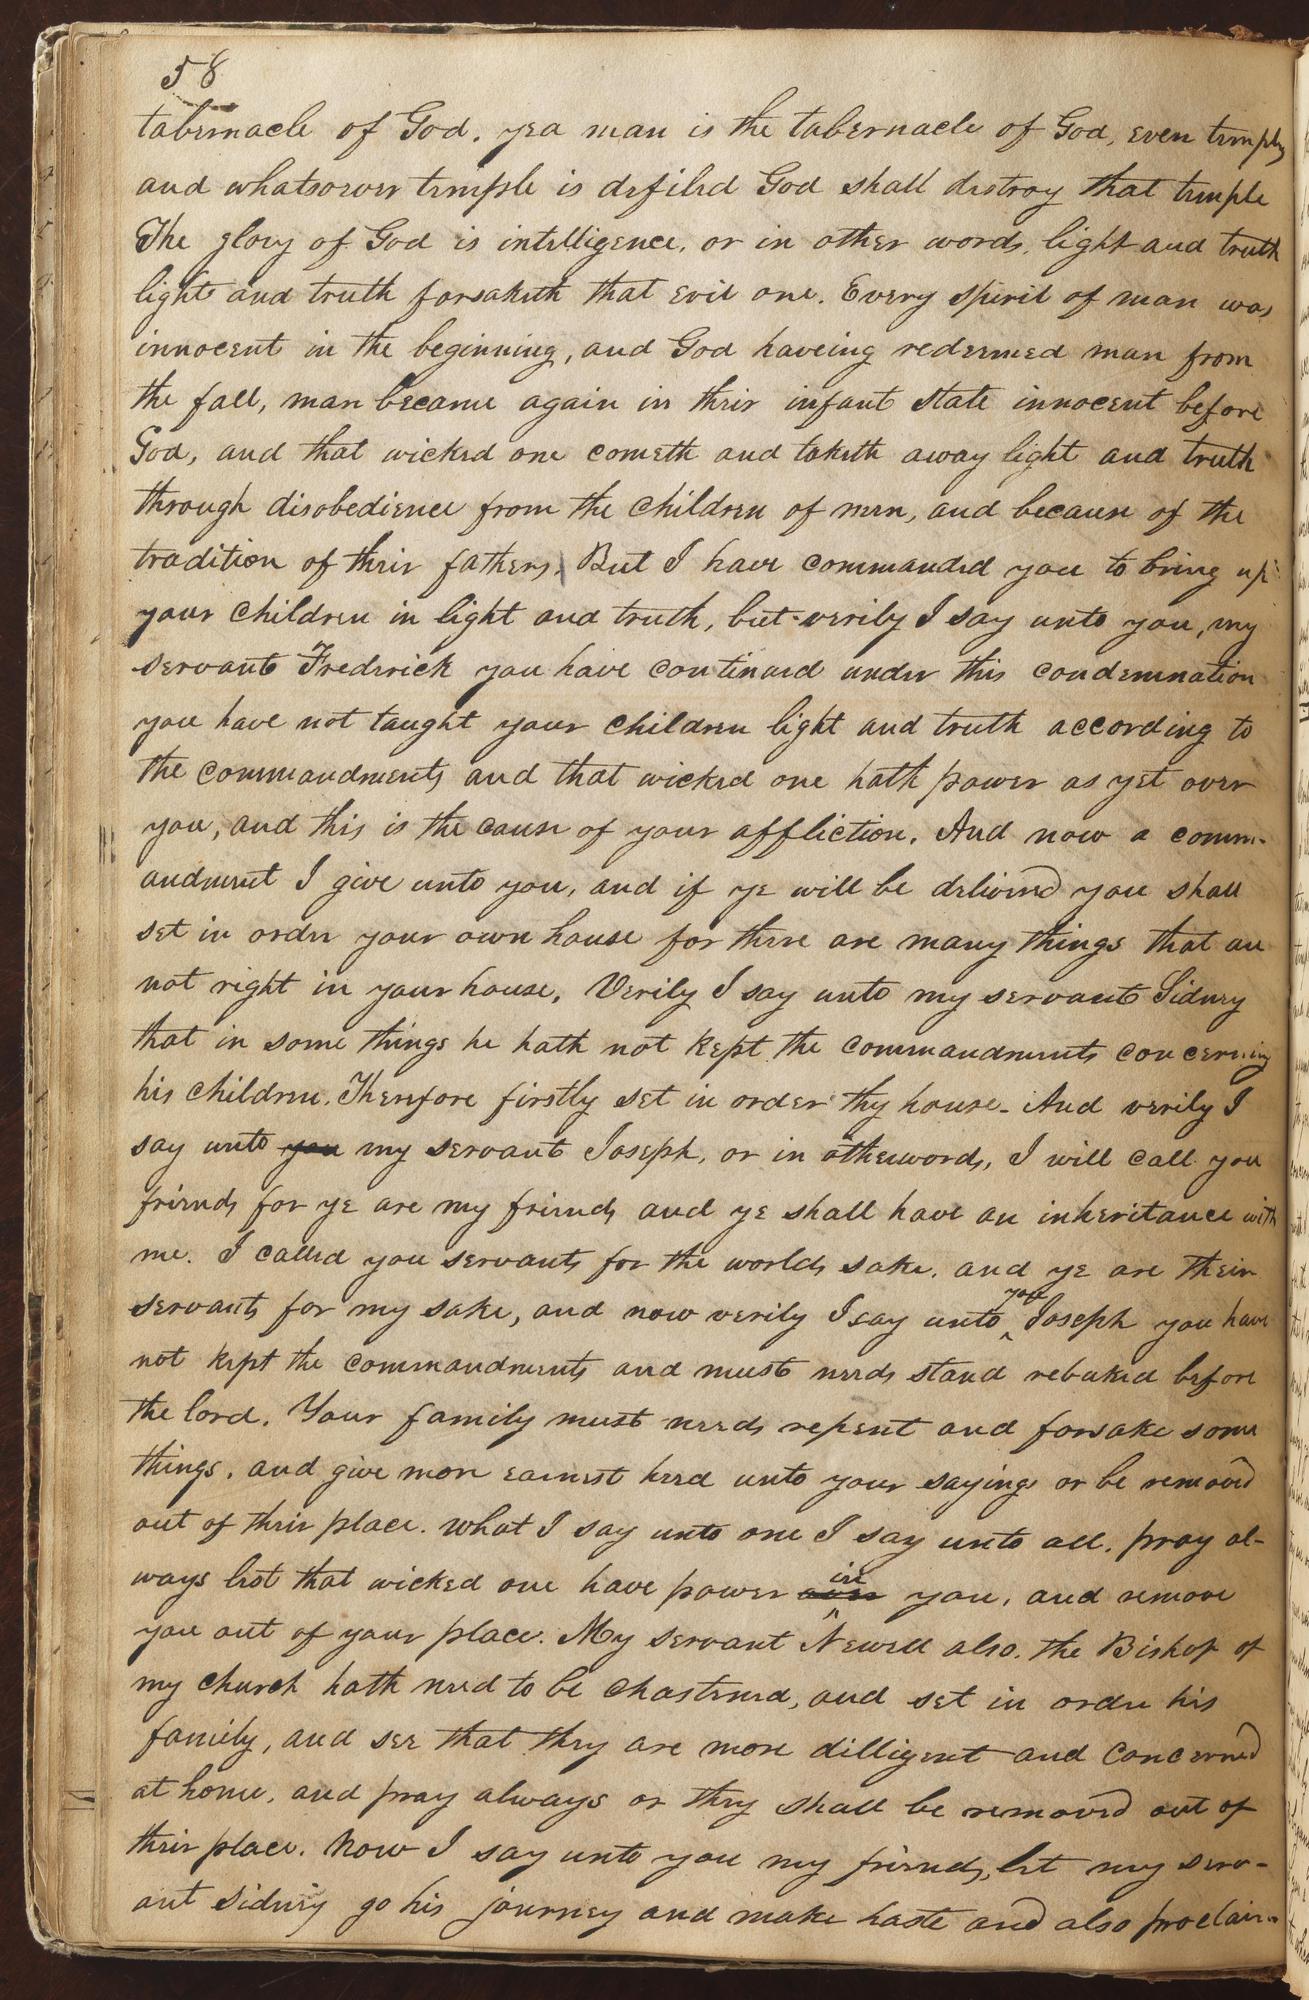 58
tabernacle of God. yea man is the tabernacle of God, even temples
and whatsoever temple is defiled God shall destroy that temple
The glory of God is intelligence, or in other words, light and truth
light and truth forsaketh that evil one. Every spirit of man was
innocent in the beginning, and God haveing redeemed man from
the fall, man became again in their infant state innocent before
God, and that wicked one cometh and taketh away light and truth
through disobedience from the children of men, and because of the
tradition of their fathers. But I have commanded you to bring up
your children in light and truth, but verily I say unto you, my
servant Frederick you have continued under this condemnation
you have not taught your children light and truth according to
the commandments and that wicked one hath power as yet over
you, and this is the cause of your affliction. And now a comm-
andment I give unto you, and if ye will be delivered you shall
set in order your own house for there are many things that are
not right in your house. Verily I say unto my servant Sidney
that in some things he hath not kept the commandments concerning
his children. Therefore firstly set in order thy house. And verily I
say unto you my servant Joseph, or in otherwords, I will call you
friends for ye are my friends and ye shall have an inheritance with
me. I called you servants for the worlds sake. and ye are their
servants for my sake, and now verily I say unto you Joseph you have
not kept the commandments and must needs stand rebuked before
the lord. Your family must needs repent and forsake some
things. and give more earnest heed unto your sayings or be removed
out of their place. what I say unto one I say unto all. pray al-
ways lest that wicked one have power over in you, and remove
you out of your place. My servant Newell also. the Bishop of
my church hath need to be chastened, and set in order his
family, and see that they are more dilligent and concerned
at home, and pray always or they shall be removed out of
their place. Now I say unto you my friends, let my serv-
ant Sidney go his journey and make haste and also proclaim